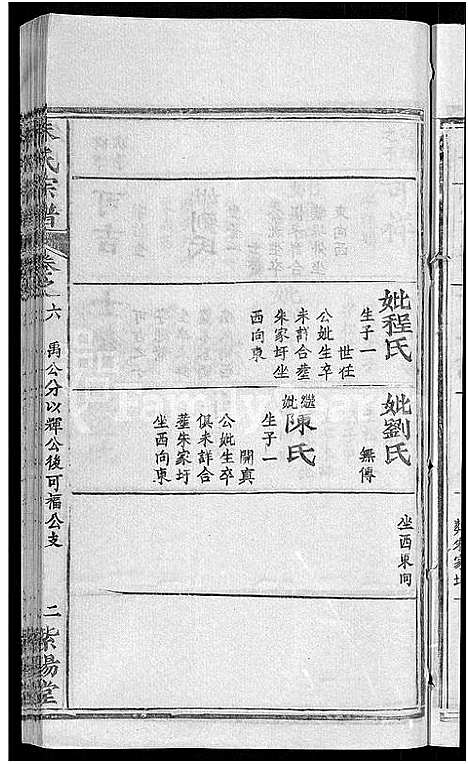 妣程氏
生子一
世任
公妣生卒
未詳合塟
朱家圩坐
西向東
妣劉氏
無傳
繼妣陳氏
生子一
開真
公妣生卒
俱未詳合
塟朱家圩
坐西向東
坐西東向
朱氏宗譜
卷之六
禹公分以輝公後可福公支
二
紫陽堂